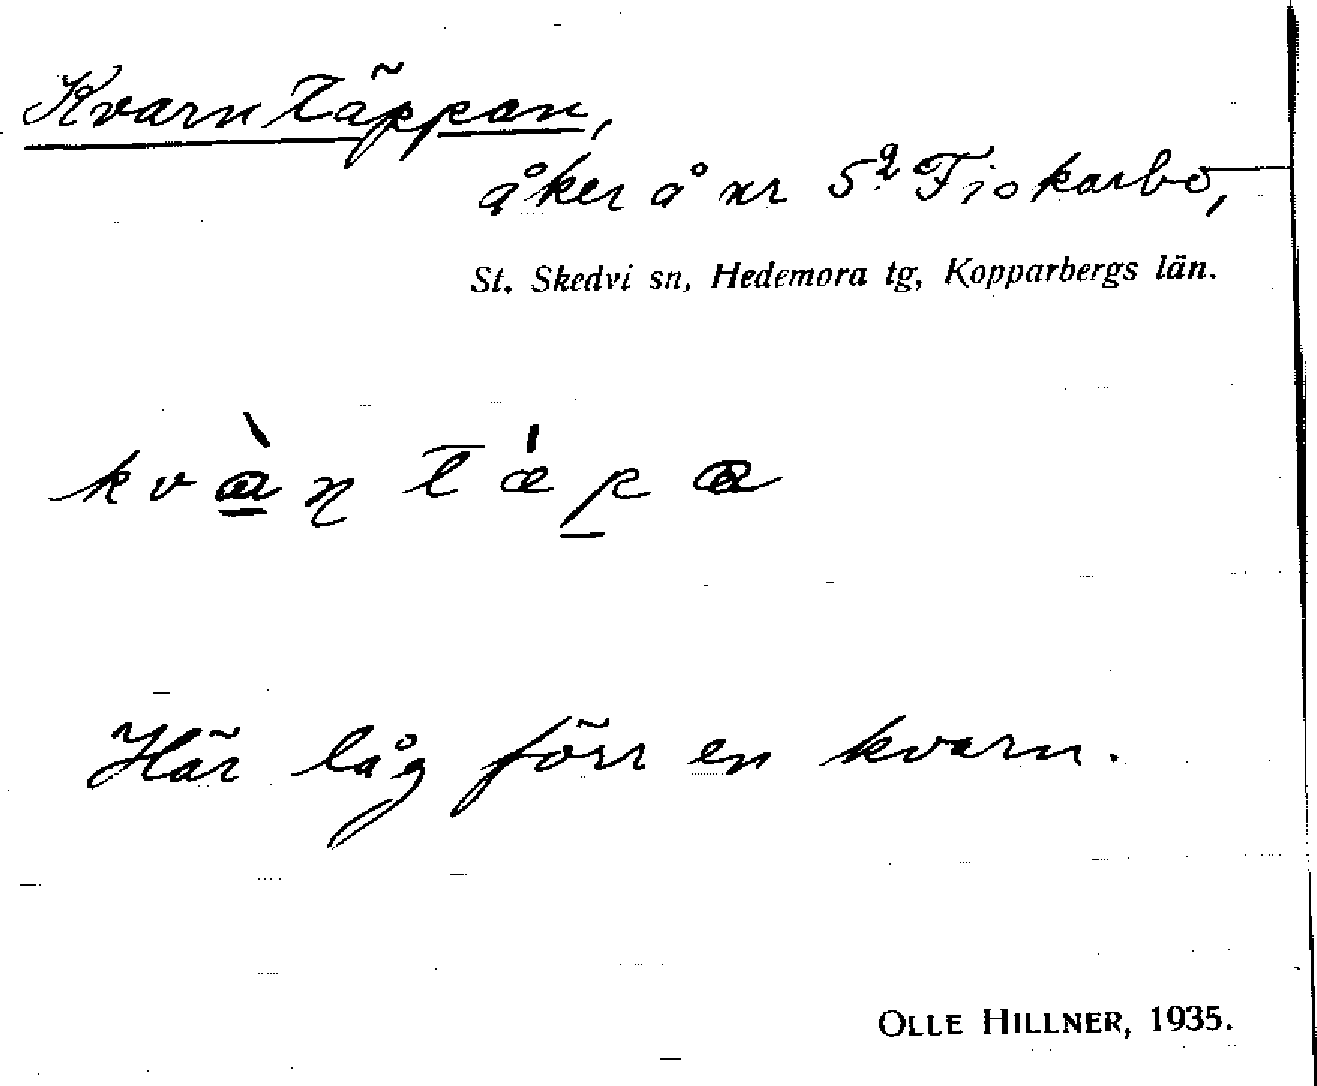 Kvarntäppan,
åker å nr 5² Fiokarbo,
St. Skedvi sn, Hedemora tg, Kopparbergs län.
Här låg förr en kvarn.
OLLE HILLNER, 1935.